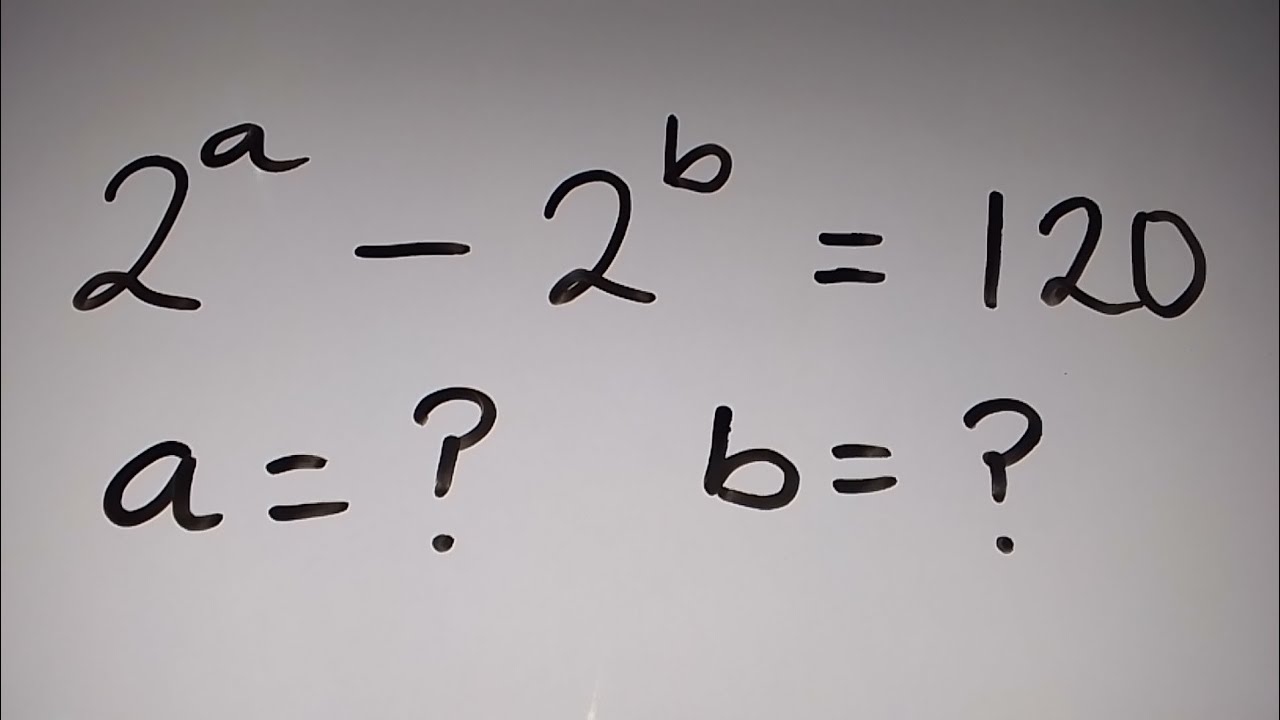 2^a - 2^b = 120
a = ? b = ?